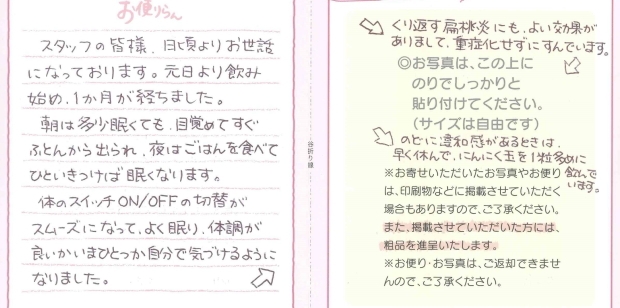 お便りらん
スタッフの皆様、日頃よりお世話
になっております。元日より飲み
始め、1か月が経ちました。
朝は多少眠くても、目覚めてすぐ
ふとんから出られ、夜はごはんを食べて
ひといきつけば眠くなります。
体のスイッチON/OFFの切替が
スムーズになって、よく眠り、体調が
良いかいまひとつか自分で気づけるように
なりました。
谷折り線
くり返す扁桃炎にも、よい効果が
ありまして、重症化せずにすんでいます。
◎お写真は、この上に
のりでしっかりと
貼り付けてください。
(サイズは自由です)
のどに違和感があるときは、
早く休んで、にんにく玉を1粒多めに
飲んで
います。
※お寄せいただいたお写真やお便り
は、印刷物などに掲載させていただく
場合もありますので、ご了承ください。
また、掲載させていただいた方には、
粗品を進呈いたします。
※お便り・お写真は、ご返却できませ
んので、ご了承ください。